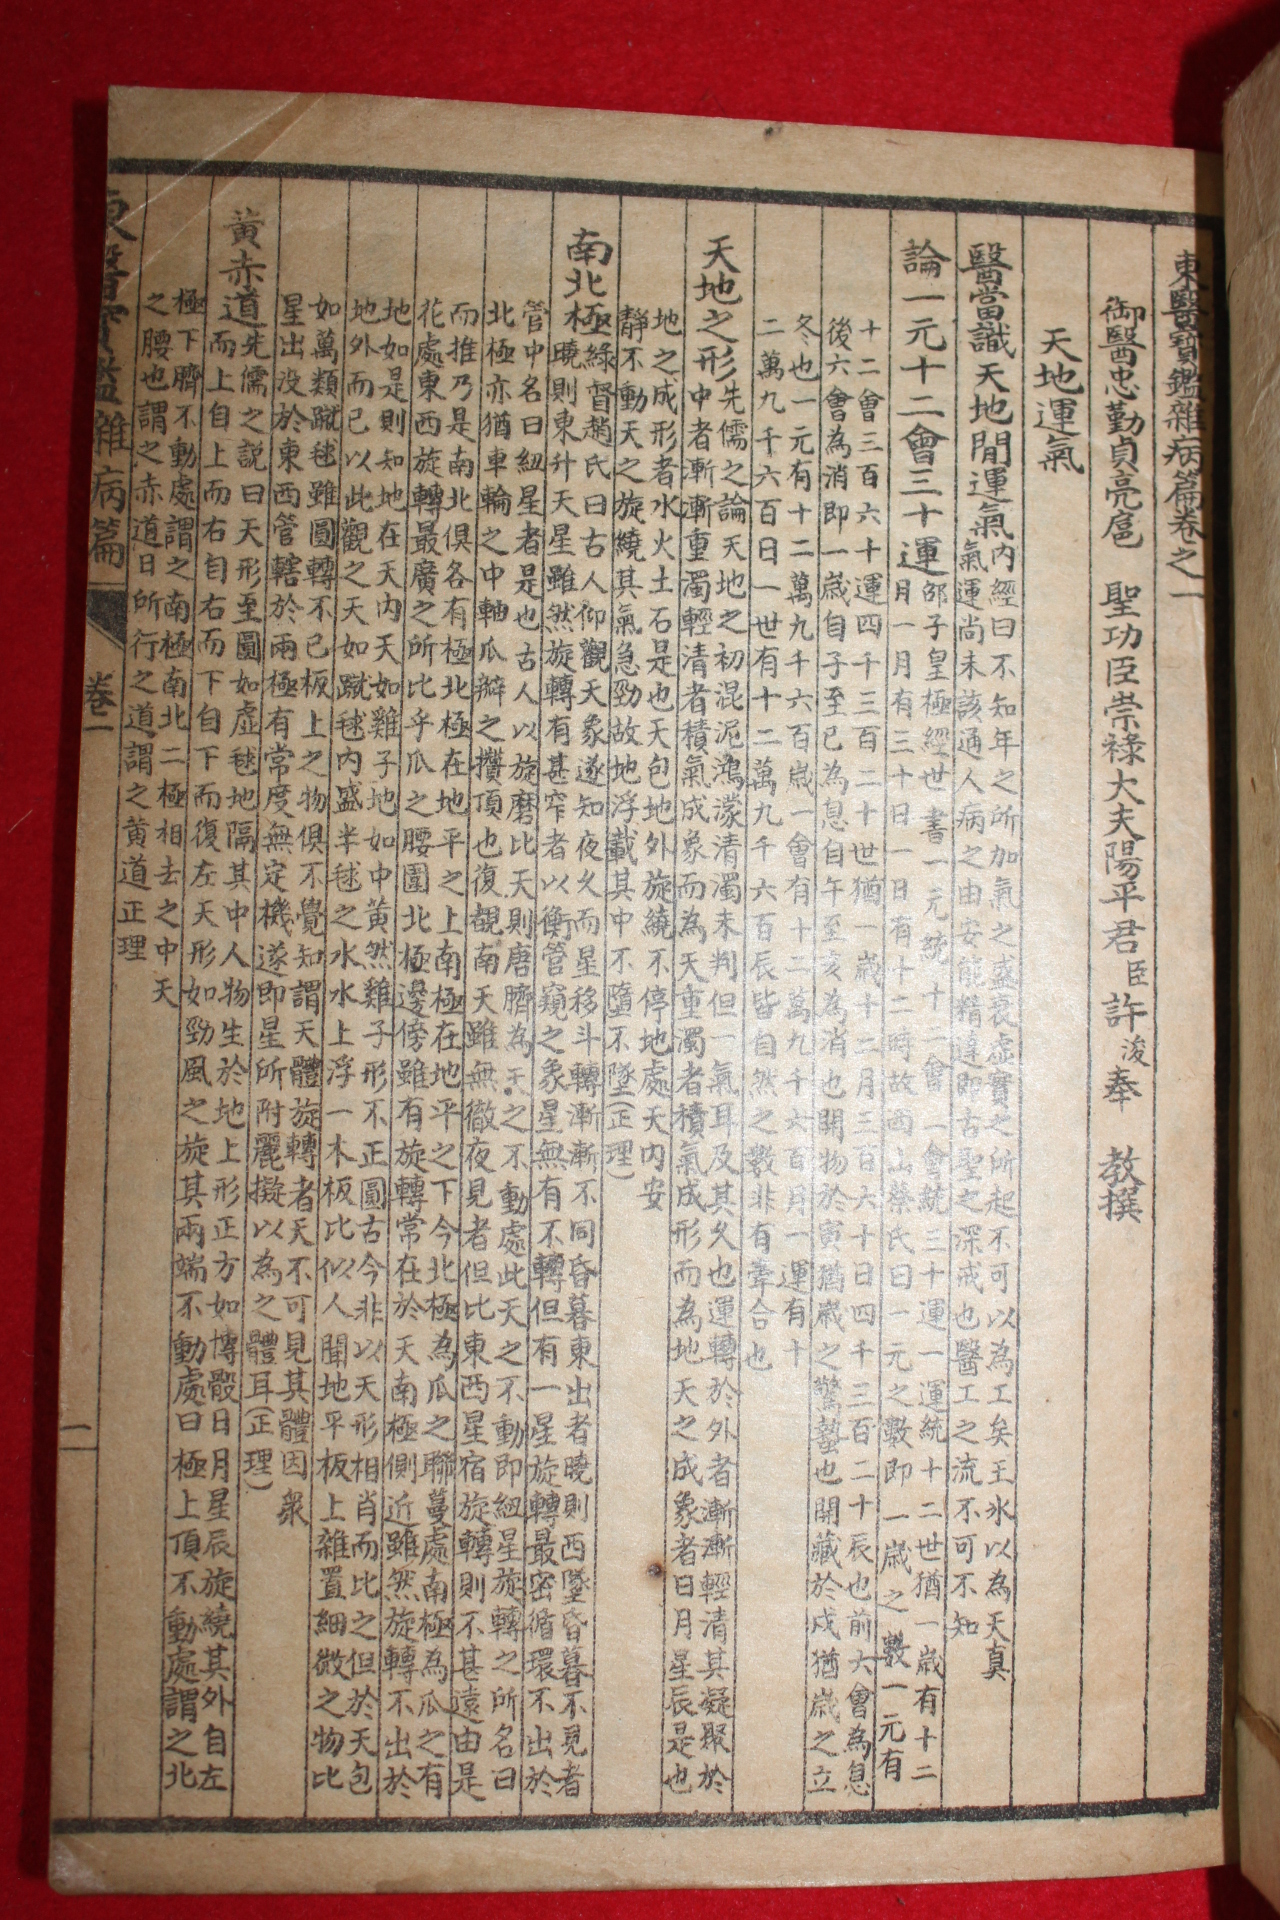 東醫寶鑑雜病篇卷之一
御醫忠勤貞亮扈 聖功臣崇祿大夫陽平君臣許浚奉 教撰
天地運氣
醫當識天地間運氣
內經曰不知年之所加氣之盛衰虛實之所起不可以為工矣王氷以為天真
氣運尚未該通人病之由安能精達即古聖之深戒也醫工之流不可不知
論一元十二會三十運
邵子皇極經世書一元統十二會一會統三十運一運統十二世猶一歲有十二
月一月有三十日一日有十二時故西山蔡氏曰一元之數即一歲之數一元有
十二會三百六十運四千三百二十世猶一歲十二月三百六十日四千三百二十辰也前六會為息
後六會為消即一歲自子至巳為息自午至亥為消也開物於寅猶歲之驚蟄也閉藏於戌猶歲之立
冬也一元有十二萬九千六百歲一會有十二萬九千六百月一運有十
二萬九千六百日一世有十二萬九千六百辰皆自然之數非有牽合也
天地之形
先儒之論天地之初混沌鴻濛清濁未判但一氣耳及其久也運轉於外者漸漸輕清其凝聚於
中者漸漸重濁輕清者積氣成象而為天重濁者積氣成形而為地天之成象者日月星辰是也
地之成形者水火土石是也天包地外旋繞不停地處天內安
靜不動天之旋繞其氣急勁故地浮載其中不墮不墜(正理)
南北極
綠督趙氏曰古人仰觀天象遂知夜久而星移斗轉漸漸不同昏暮東出者曉則西墜昏暮不見者
曉則東升天星雖然旋轉有甚窄者以衡管窺之象星無有不轉但有一星旋轉最密循環不出於
管中名曰紐星者是也古人以旋磨比天則唐臍為天之不動處此天之不動即紐星旋轉之所名曰
北極亦猶車輪之中軸瓜瓣之攢頂也復覩南天雖無徹夜見者但比東西星宿旋轉則不甚遠由是
而推乃是南北俱各有極北極在地平之上南極在地平之下今北極為瓜之聯蔓處南極為瓜之有
花處東西旋轉最廣之所比乎瓜之腰圍北極邊傍雖有旋轉常在於天南極側近雖然旋轉不出於
地如是則知地在天內天如雞子地如中黃然雞子形不正圓古今非以天形相肖而比之但於天包
地外而已以此觀之天如蹴毬內盛半毬之水水上浮一木板比似人間地平板上雜置細微之物比
如萬類蹴毬雖圓轉不已板上之物俱不覺知謂天體旋轉者天不可見其體因衆
星出沒於東西管轄於兩極有常度無定機遂即星所附麗擬以為之體耳(正理)
黃赤道
先儒之說曰天形至圓如虛毬地隔其中人物生於地上形正方如博骰日月星辰旋繞其外自左
而上自上而右自右而下自下而復左天形如勁風之旋其兩端不動處曰極上頂不動處謂之北
極下臍不動處謂之南極南北二極相去之中天
之腰也謂之赤道日所行之道謂之黃道正理
東醫寶鑑雜病篇 卷一
一